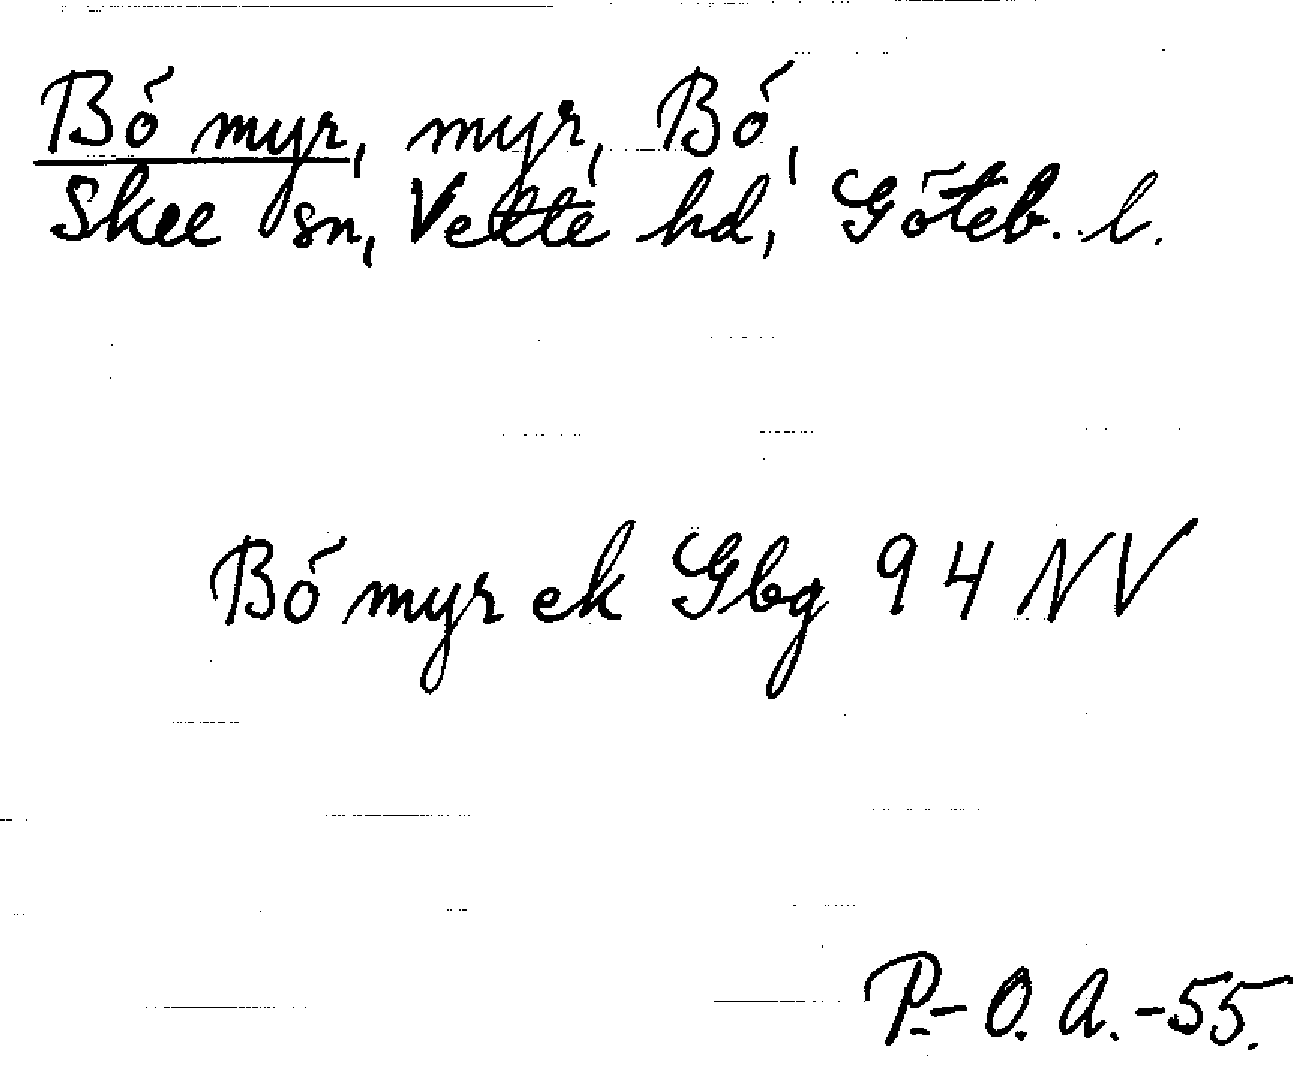 Bö myr, myr, Bö,
Skee sn, Vette hd, Göteb. l.
Bö myr ek Gbg 94 NV
P.-O. A. -55.